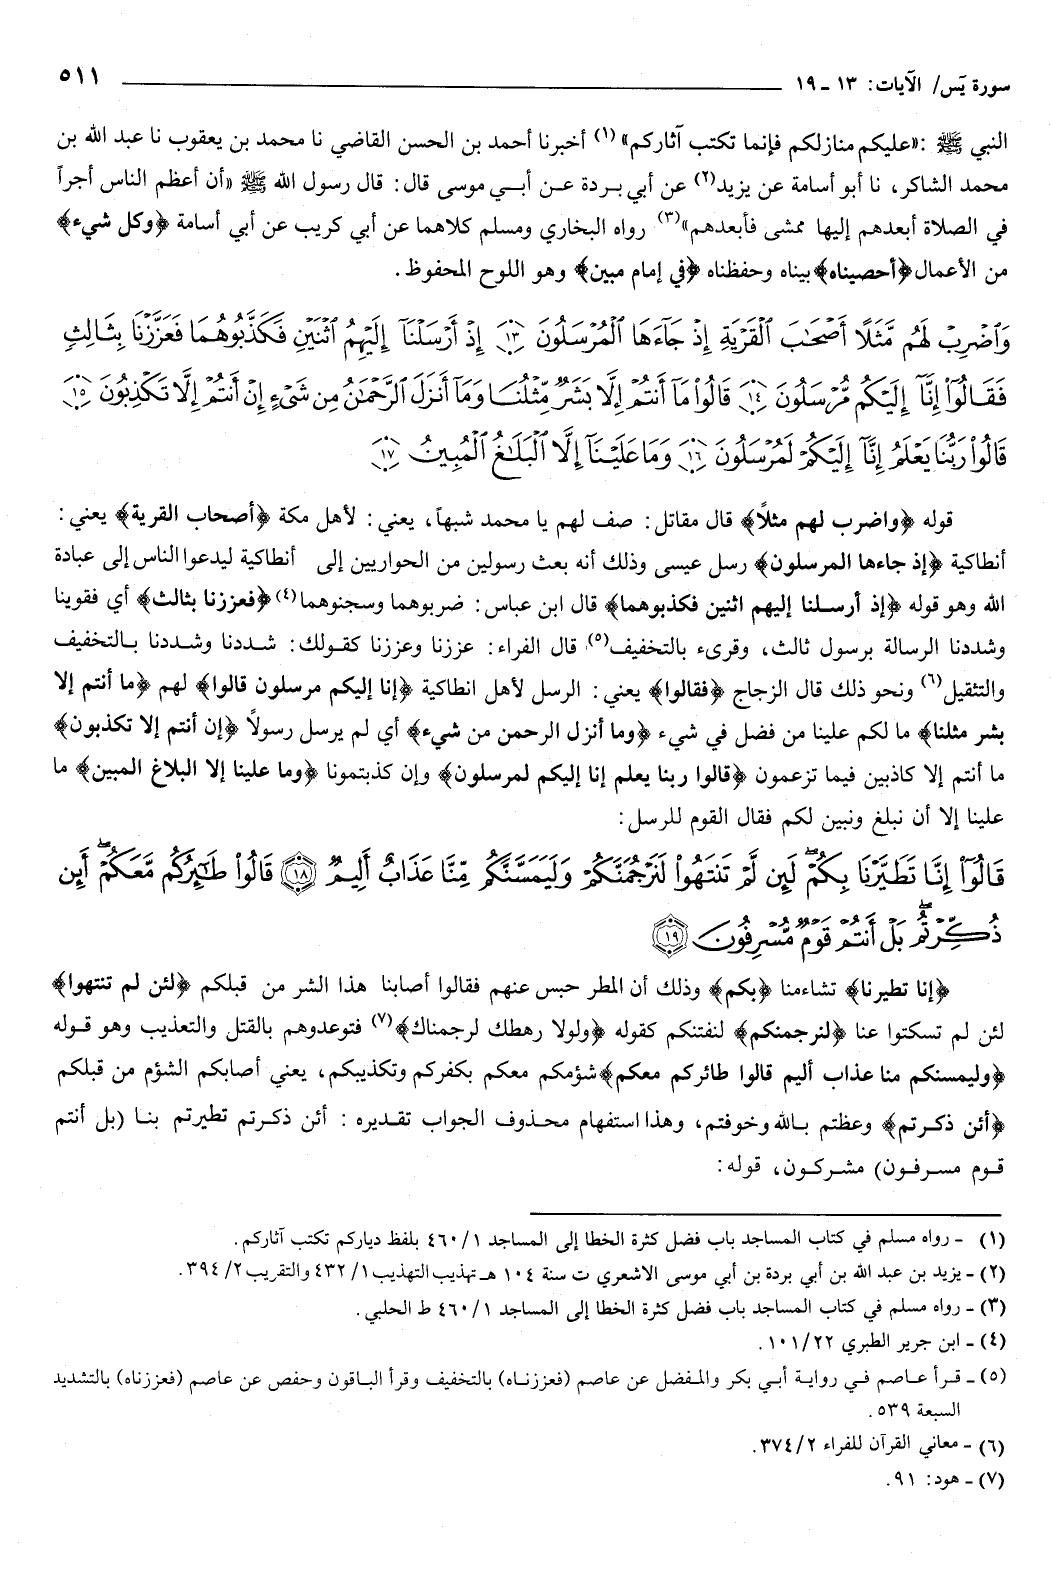 سورة يَس/ الآيات: ١٣ ـ ١٩
٥١١
النبي ﷺ :«عليكم منازلكم فإنما تكتب آثاركم» (١) أخبرنا أحمد بن الحسن القاضي نا محمد بن يعقوب نا عبد الله بن
محمد الشاكر، نا أبو أسامة عن يزيد(٢) عن أبي بردة عن أبي موسى قال: قال رسول الله ﷺ «أن أعظم الناس أجراً
في الصلاة أبعدهم إليها ممشى فأبعدهم»(٣) رواه البخاري ومسلم كلاهما عن أبي كريب عن أبي أسامة ﴿وكل شيء﴾
من الأعمال﴿أحصيناه﴾بيناه وحفظناه ﴿في إمام مبين﴾ وهو اللوح المحفوظ.
وَٱضْرِبْ لَهُم مَّثَلًا أَصْحَٰبَ ٱلْقَرْيَةِ إِذْ جَآءَهَا ٱلْمُرْسَلُونَ ١٣ إِذْ أَرْسَلْنَآ إِلَيْهِمُ ٱثْنَيْنِ فَكَذَّبُوهُمَا فَعَزَّزْنَا بِثَالِثٍ
فَقَالُوٓا۟ إِنَّآ إِلَيْكُم مُّرْسَلُونَ ١٤ قَالُوا۟ مَآ أَنتُمْ إِلَّا بَشَرٌ مِّثْلُنَا وَمَآ أَنزَلَ ٱلرَّحْمَٰنُ مِن شَىْءٍ إِنْ أَنتُمْ إِلَّا تَكْذِبُونَ ١٥
قَالُوا۟ رَبُّنَا يَعْلَمُ إِنَّآ إِلَيْكُمْ لَمُرْسَلُونَ ١٦ وَمَا عَلَيْنَآ إِلَّا ٱلْبَلَٰغُ ٱلْمُبِينُ ١٧
قوله ﴿واضرب لهم مثلاً﴾ قال مقاتل: صف لهم يا محمد شبهاً، يعني: لأهل مكة ﴿أصحاب القرية﴾ يعني:
أنطاكية ﴿إذ جاءها المرسلون﴾ رسل عيسى وذلك أنه بعث رسولين من الحواريين إلى أنطاكية ليدعوا الناس إلى عبادة
الله وهو قوله ﴿إذ أرسلنا إليهم اثنين فكذبوهما﴾ قال ابن عباس: ضربوهما وسجنوهما(٤) ﴿فعززنا بثالث﴾ أي فقوينا
وشددنا الرسالة برسول ثالث، وقرىء بالتخفيف(٥) قال الفراء: عززنا وعززنا كقولك: شددنا وشددنا بالتخفيف
والتثقيل(٦) ونحو ذلك قال الزجاج ﴿فقالوا﴾ يعني: الرسل لأهل انطاكية ﴿إنا إليكم مرسلون قالوا﴾ لهم ﴿ما أنتم إلا
بشر مثلنا﴾ ما لكم علينا من فضل في شيء ﴿وما أنزل الرحمن من شيء﴾ أي لم يرسل رسولاً ﴿إن أنتم إلا تكذبون﴾
ما أنتم إلا كاذبين فيما تزعمون ﴿قالوا ربنا يعلم إنا إليكم لمرسلون﴾ وإن كذبتمونا ﴿وما علينا إلا البلاغ المبين﴾ ما
علينا إلا أن نبلغ ونبين لكم فقال القوم للرسل:
قَالُوٓا۟ إِنَّا تَطَيَّرْنَا بِكُمْ ۖ لَئِن لَّمْ تَنتَهُوا۟ لَنَرْجُمَنَّكُمْ وَلَيَمَسَّنَّكُم مِّنَّا عَذَابٌ أَلِيمٌ ١٨ قَالُوا۟ طَٰٓئِرُكُم مَّعَكُمْ ۚ أَئِن
ذُكِّرْتُم ۚ بَلْ أَنتُمْ قَوْمٌ مُّسْرِفُونَ ١٩
﴿إنا تطيرنا﴾ تشاءمنا ﴿بكم﴾ وذلك أن المطر حبس عنهم فقالوا أصابنا هذا الشر من قبلكم ﴿لئن لم تنتهوا﴾
لئن لم تسكتوا عنا ﴿لنرجمنكم﴾ لنفتنكم كقوله ﴿ولولا رهطك لرجمناك﴾(٧) فتوعدوهم بالقتل والتعذيب وهو قوله
﴿وليمسنكم منا عذاب أليم قالوا طائركم معكم﴾شؤمكم معكم بكفركم وتكذيبكم، يعني أصابكم الشؤم من قبلكم
﴿أئن ذكرتم﴾ وعظتم بالله وخوفتم، وهذا استفهام محذوف الجواب تقديره : أئن ذكرتم تطيرتم بنا (بل أنتم
قوم مسرفون) مشركون، قوله:
(١) ـ رواه مسلم في كتاب المساجد باب فضل كثرة الخطا إلى المساجد ٤٦٠/١ بلفظ دياركم تكتب آثاركم.
(٢) ـ يزيد بن عبد الله بن أبي بردة بن أبي موسى الاشعري ت سنة ١٠٤ هـ تهذيب التهذيب ٤٣٢/١ والتقريب ٣٩٤/٢.
(٣) ـ رواه مسلم في كتاب المساجد باب فضل كثرة الخطا إلى المساجد ٤٦٠/١ ط الحلبي.
(٤) ـ ابن جرير الطبري ١٠١/٢٢.
(٥) ـ قرأ عاصم في رواية أبي بكر والمفضل عن عاصم (فعززناه) بالتخفيف وقرأ الباقون وحفص عن عاصم (فعززناه) بالتشديد
السبعة ٥٣٩.
(٦) ـ معاني القرآن للفراء ٣٧٤/٢.
(٧) ـ هود: ٩١.